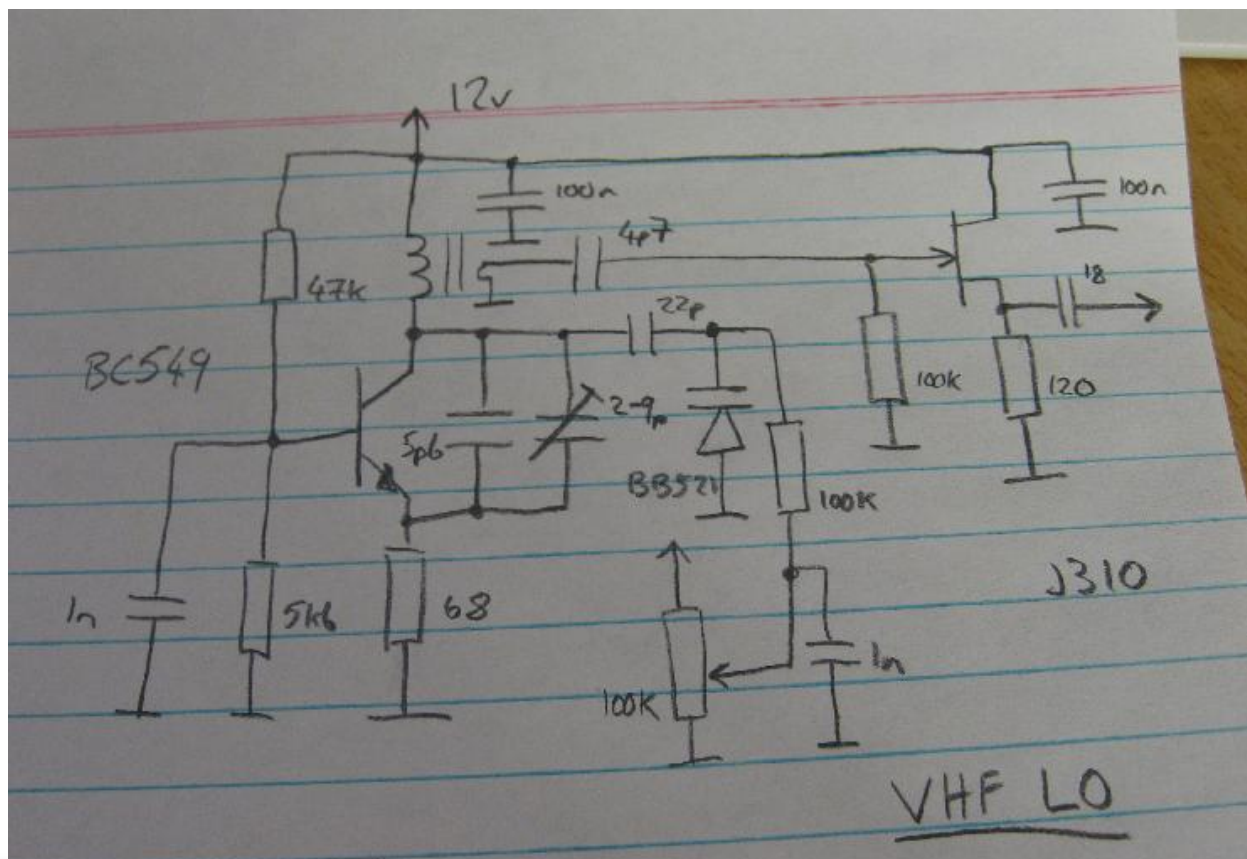 12v
100n
100n
4p7
47k
22p
18
BC549
100K
120
2-9p
5p6
BB521
100K
J310
1n
5k6
68
1n
100K
VHF LO